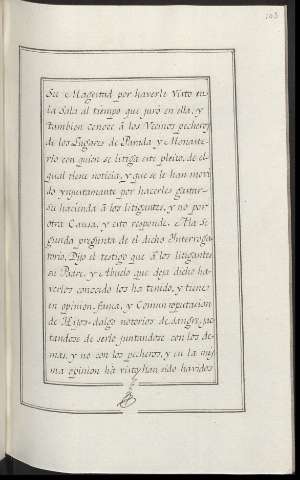 103
Su Magestad por haverle visto en
la Sala al tiempo que juró en ella, y
tambien conoce â los Vecinos pecheros
de los Lugares de Parida y Monaste-
rio con quien se litiga este pleito, de el
qual tiene noticia, y que se le han movi
do ynjustamente por hacerles gastar
su hacienda â los litigantes, y no por
otra Causa, y esto responde. A la Se
gunda pregunta de el dicho Interroga
torio, Dijo el testigo que â los litigantes
su Padre, y Abuelo que deja dicho ha
verlos conocido los ha tenido, y tiene
en opinion, fama, y Comun reputacion
de Hijos-dalgo notorios de sangre, jac
tandose de serlo juntandose con los de
mas, y no con los pecheros, y en la mis
ma opinion hà visto han sido havidos